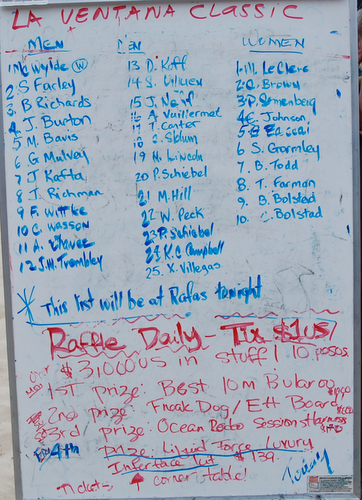 LA VENTANA CLASSIC
MEN
1. Wylde W
2. S Farley
3. B Richards
4. J. Burton
5 M. Bavis
6 G Mulvey
7 J Kafta
8 J. Richman
9 F. Wittke
10 C Wasson
11 A. Chavez
12 J.M. Trembley
MEN
13 D. Koff
14 S. Villues
15 J.
16 A Vuillermet
17 T. Carter
18 C. Sklum
19 N. Lincoln
20 P. Schiebel
21 M. Hill
22 W. Peck
23 P. Schiebel
24 K.C Campbell
25. X. Villegas
WOMEN
1. M. LeClerc
2. C. Brown
3. P. Semenberg
4 E. Johnson
5
6 S. Gormley
7 B. Todd
8. T. Farman
9. B. Bolstad
10. C. Bolstad
* This list will be at Rafas tonight
Raffle Daily - Tix $1 US/
$3,1000 US in stuff! 10 pesos.
1st prize: Best 10m Bularoo
2nd prize: Freak Dog/Ett Board
3rd prize: Ocean Rodeo Session Harness
4th prize: Liquid Force Luxury
Interface Suit $139.
Tickets ↑ corner table!